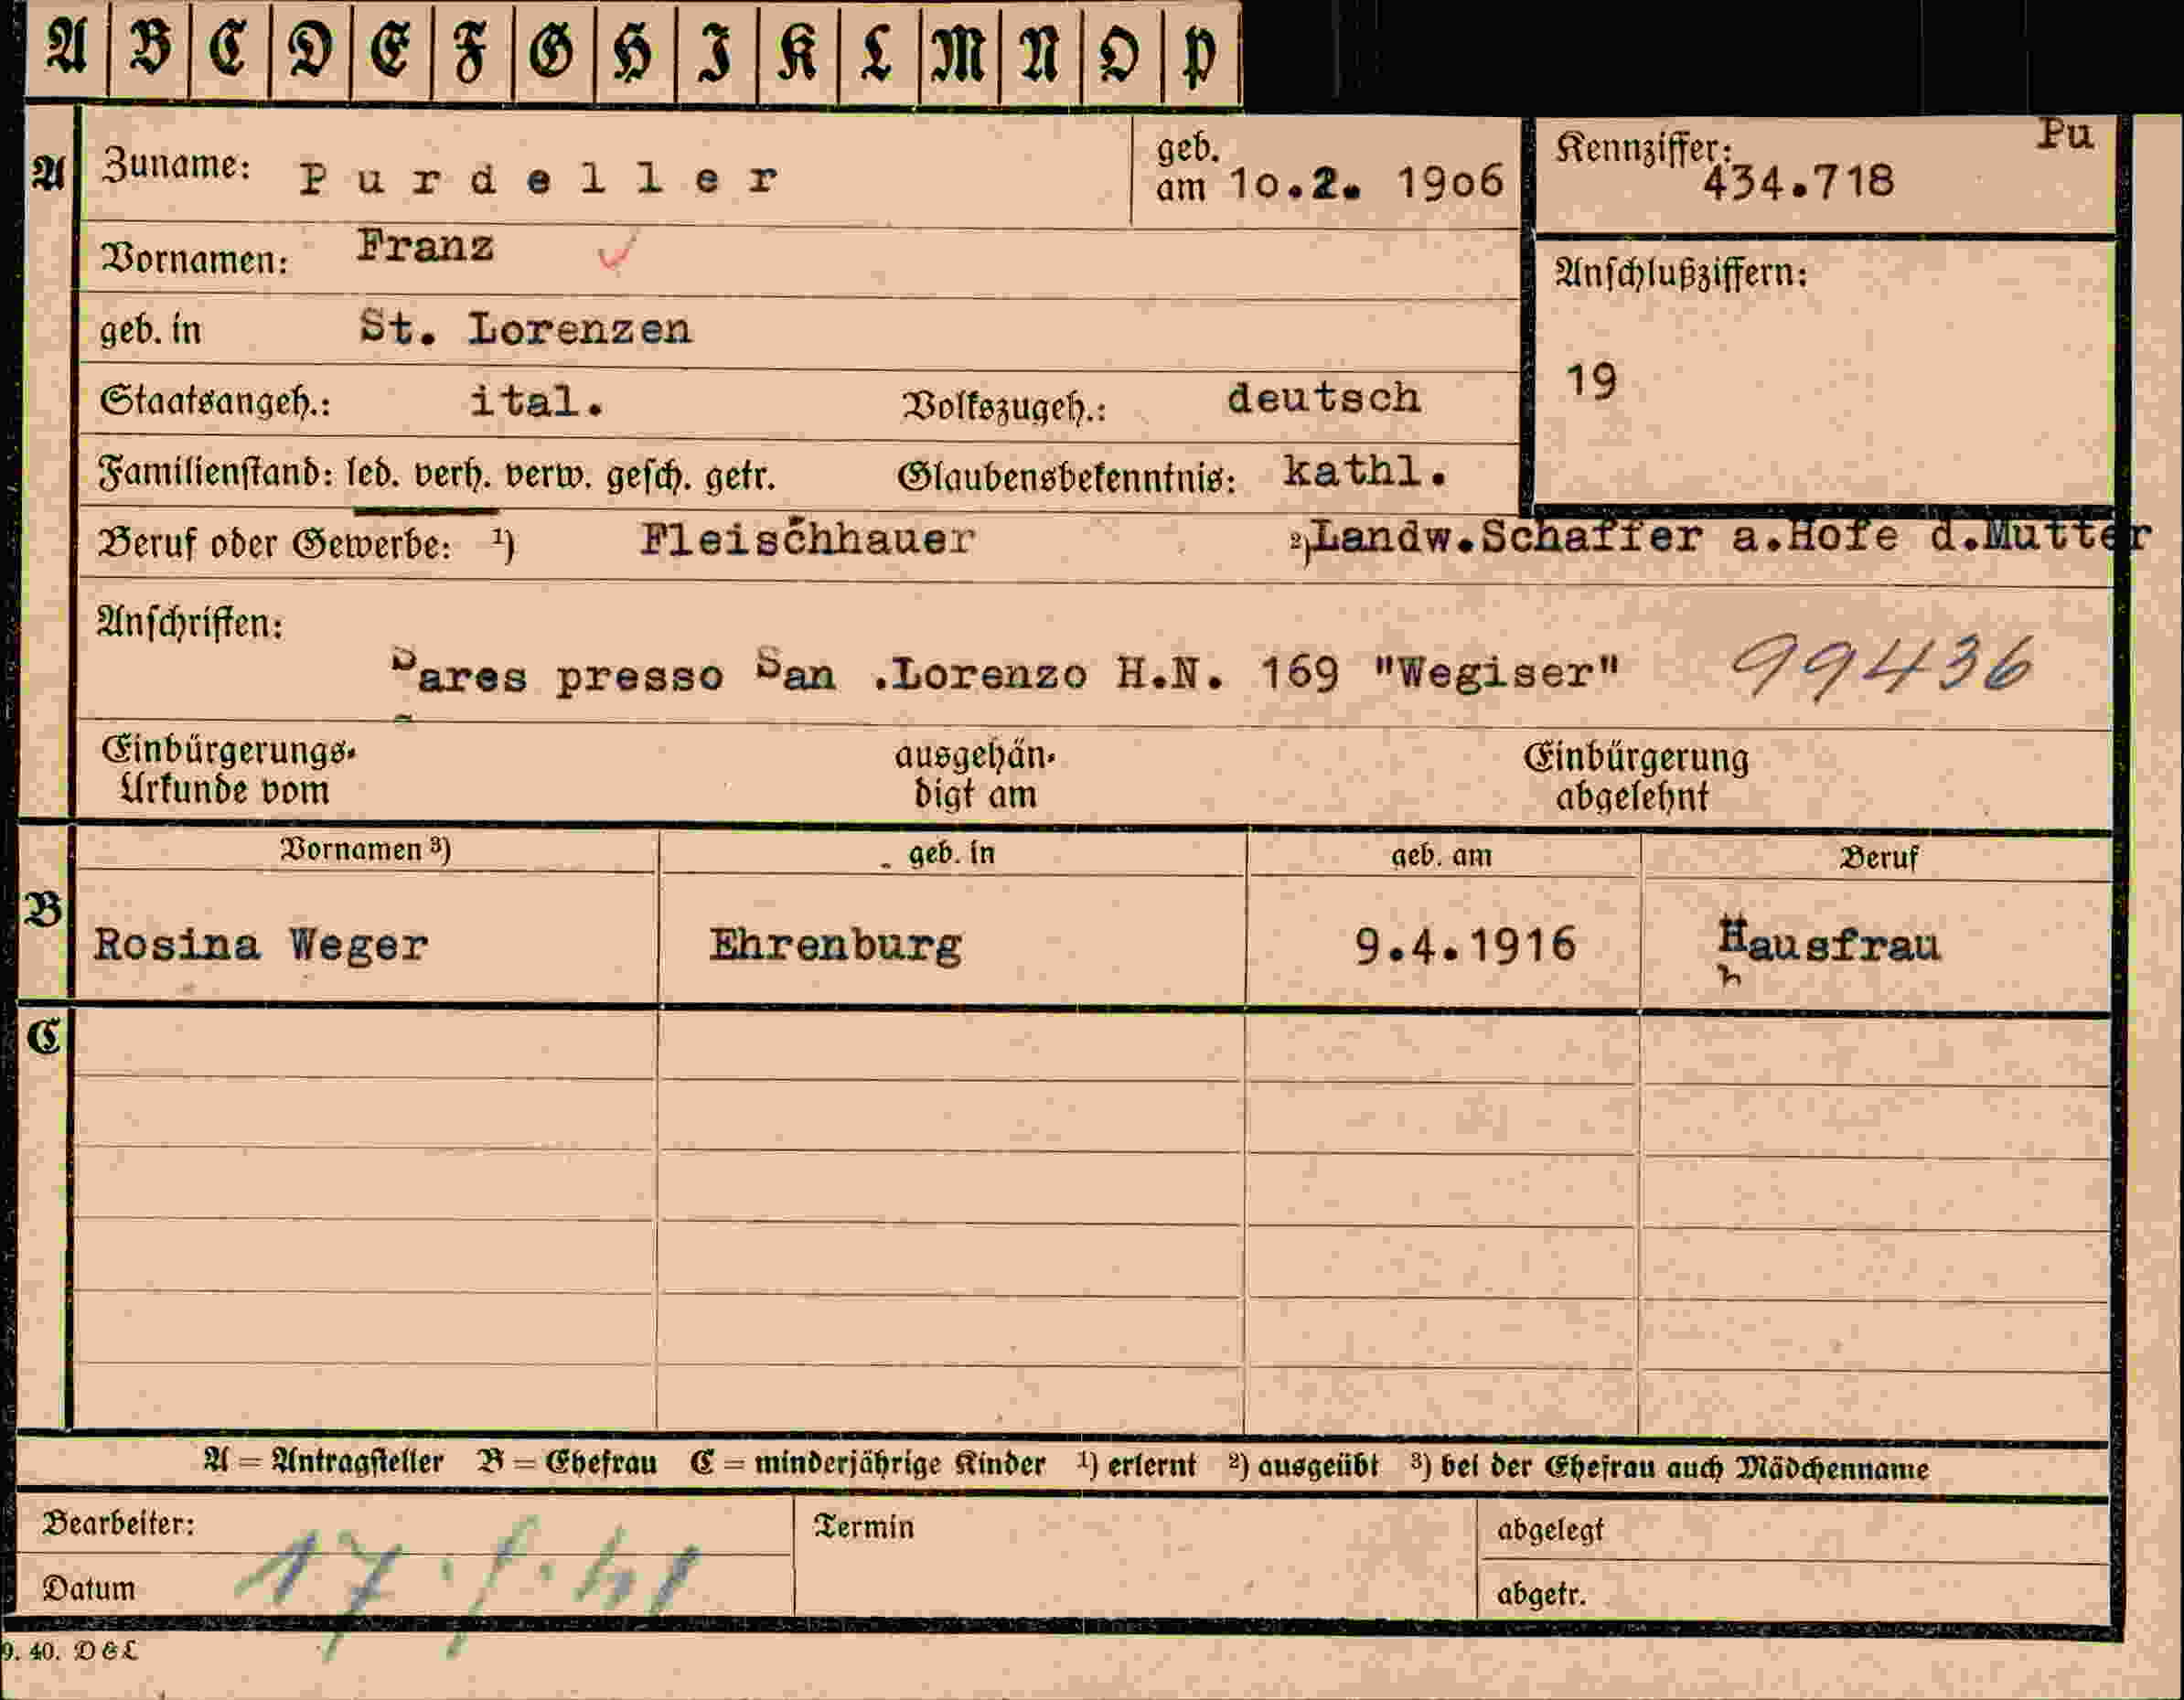 A B C D E F G H I K L M N O P
A Zuname: Purdeller geb. am 10.2. 1906 Kennziffer: 434.718 Pu
Vornamen: Franz
Anschlußziffern:
geb. in St. Lorenzen
19
Staatsangeh.: ital. Volkszugeh.: deutsch
Familienstand: led. verh. verw. gesch. getr. Glaubensbekenntnis: kathl.
Beruf oder Gewerbe: ¹) Fleischhauer ²) Landw.Schaffer a.Hofe d.Mutter
Anschriften:
Pares presso San .Lorenzo H.N. 169 "Wegiser" 99436
Einbürgerungs- ausgehän- Einbürgerung
Urkunde vom digt am abgelehnt
Vornamen ³) geb. in geb. am Beruf
B Rosina Weger Ehrenburg 9.4.1916 Hausfrau
C
A = Antragsteller B = Ehefrau C = minderjährige Kinder ¹) erlernt ²) ausgeübt ³) bei der Ehefrau auch Mädchenname
Bearbeiter: Termin abgelegt
Datum abgetr.
9. 40. D&L